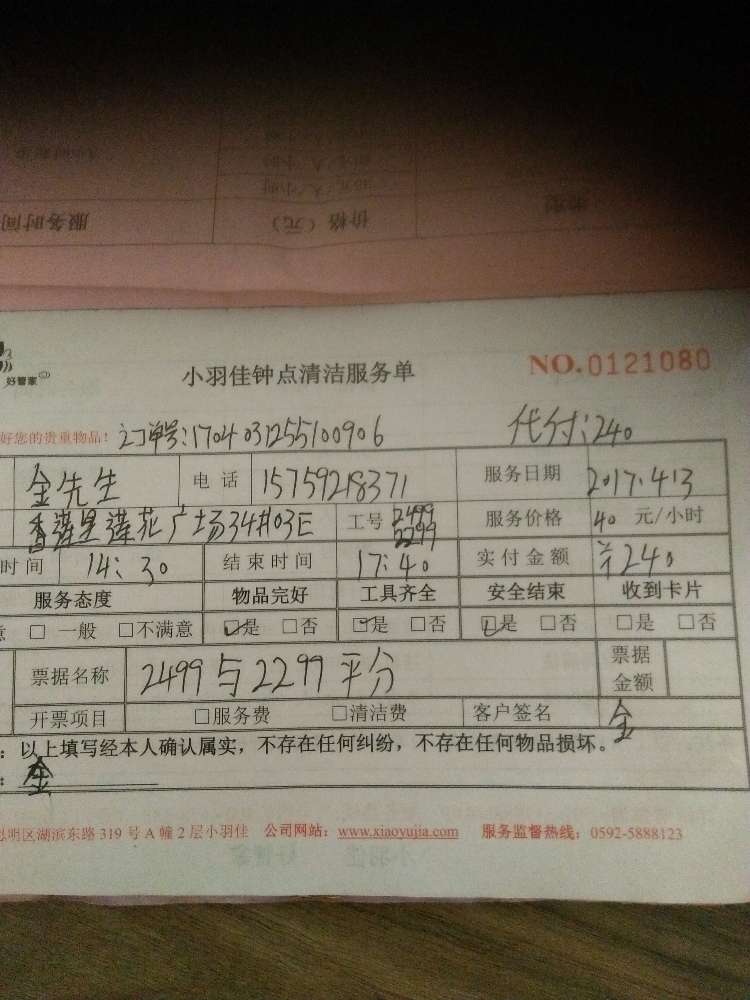 服务时间 价格（元） 类型
好管家
小羽佳钟点清洁服务单 NO.0121080
好您的贵重物品！ 订单号:1704031255100906 代付:240
金先生 电话 15759218371 服务日期 2017.4.13
香莲里莲花广场34#03E 工号 2499 2299 服务价格 40 元/小时
时间 14:30 结束时间 17:40 实付金额 ¥240
服务态度 物品完好 工具齐全 安全结束 收到卡片
意 □ 一般 □不满意 ☑是 □否 ☑是 □否 ☑是 □否 □是 □否
票据名称 2499与2299平分 票据金额
开票项目 □服务费 □清洁费 客户签名 金
：以上填写经本人确认属实，不存在任何纠纷，不存在任何物品损坏。
：金
思明区湖滨东路 319 号 A 幢 2 层小羽佳 公司网站：www.xiaoyujia.com 服务监督热线：0592-5888123